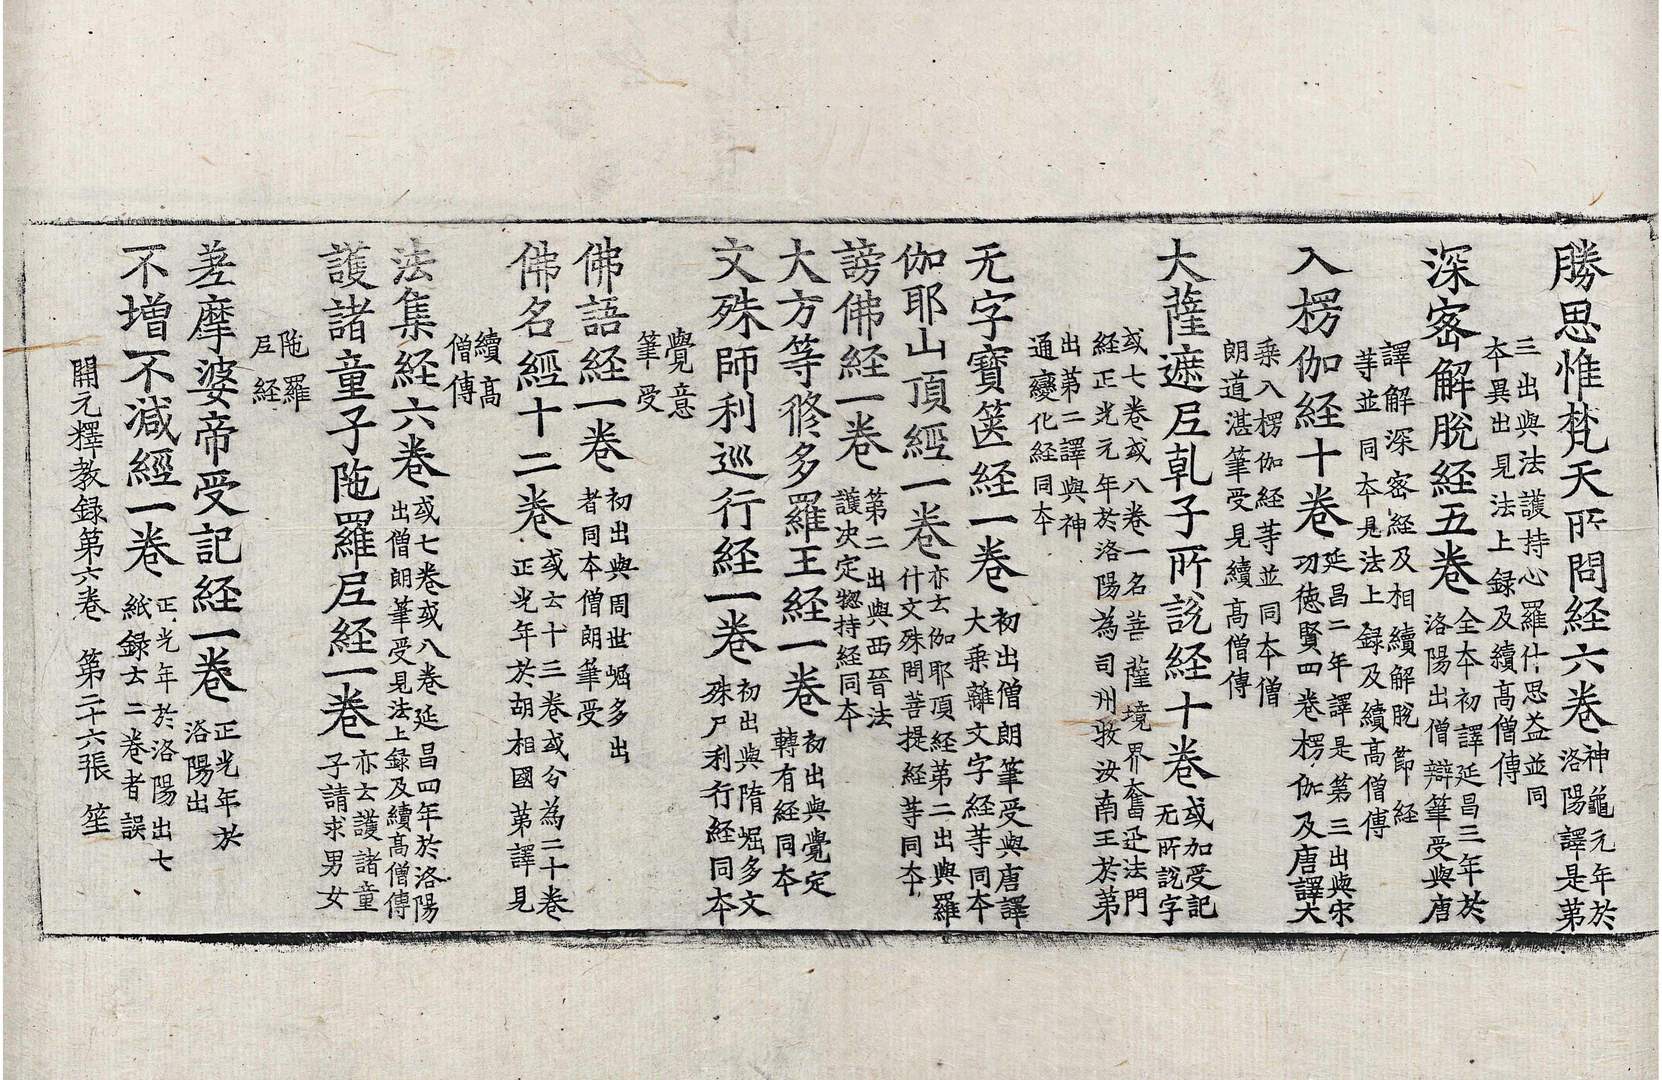 勝思惟梵天所問経六卷神龜元年於洛陽譯是第
三出與法護持心羅什思益並同夲異出見法上録及續髙僧傳
深宻解脫経五卷全夲初譯延昌三年於洛陽出僧辯筆受與唐
譯解深宻経及相續解脫節経等並同夲見法上録及續髙僧傳
入楞伽経十卷延昌二年譯是第三出與宋功徳賢四卷楞伽及唐譯大
乘入楞伽経等並同夲僧朗道湛筆受見續髙僧傳
大薩遮尼乹子所說経十卷或加受記无所說字
或七卷或八卷一名菩薩境界奮迅法門経正光元年於洛陽為司州牧汝南王於第
出第二譯與神通變化経同夲
无字寶篋経一卷初出僧朗筆受與唐譯大乘離文字経等同夲
伽耶山頂經一卷亦云伽耶頂経第二出與羅什文殊問菩提経等同夲
謗佛経一卷第二出與西晉法護决定惣持経同夲
大方等修多羅王経一卷初出與覺定轉有経同夲
文殊師利巡行経一卷初出與隋崛多文殊尸利行経同夲
覺意筆受
佛語経一卷初出與周世崛多出者同夲僧朗筆受
佛名經十二卷或云十三卷或分為二十卷正光年於胡相國第譯見
續髙僧傳
法集経六卷或七卷或八卷延昌四年於洛陽出僧朗筆受見法上録及續髙僧傳
護諸童子陁羅尼經一卷亦云護諸童子請求男女
陁羅尼経
差摩婆帝受記経一卷正光年於洛陽出
不增不減經一卷正光年於洛陽出七紙録云二卷者誤
開元釋教録第六卷　第二十六張　笙